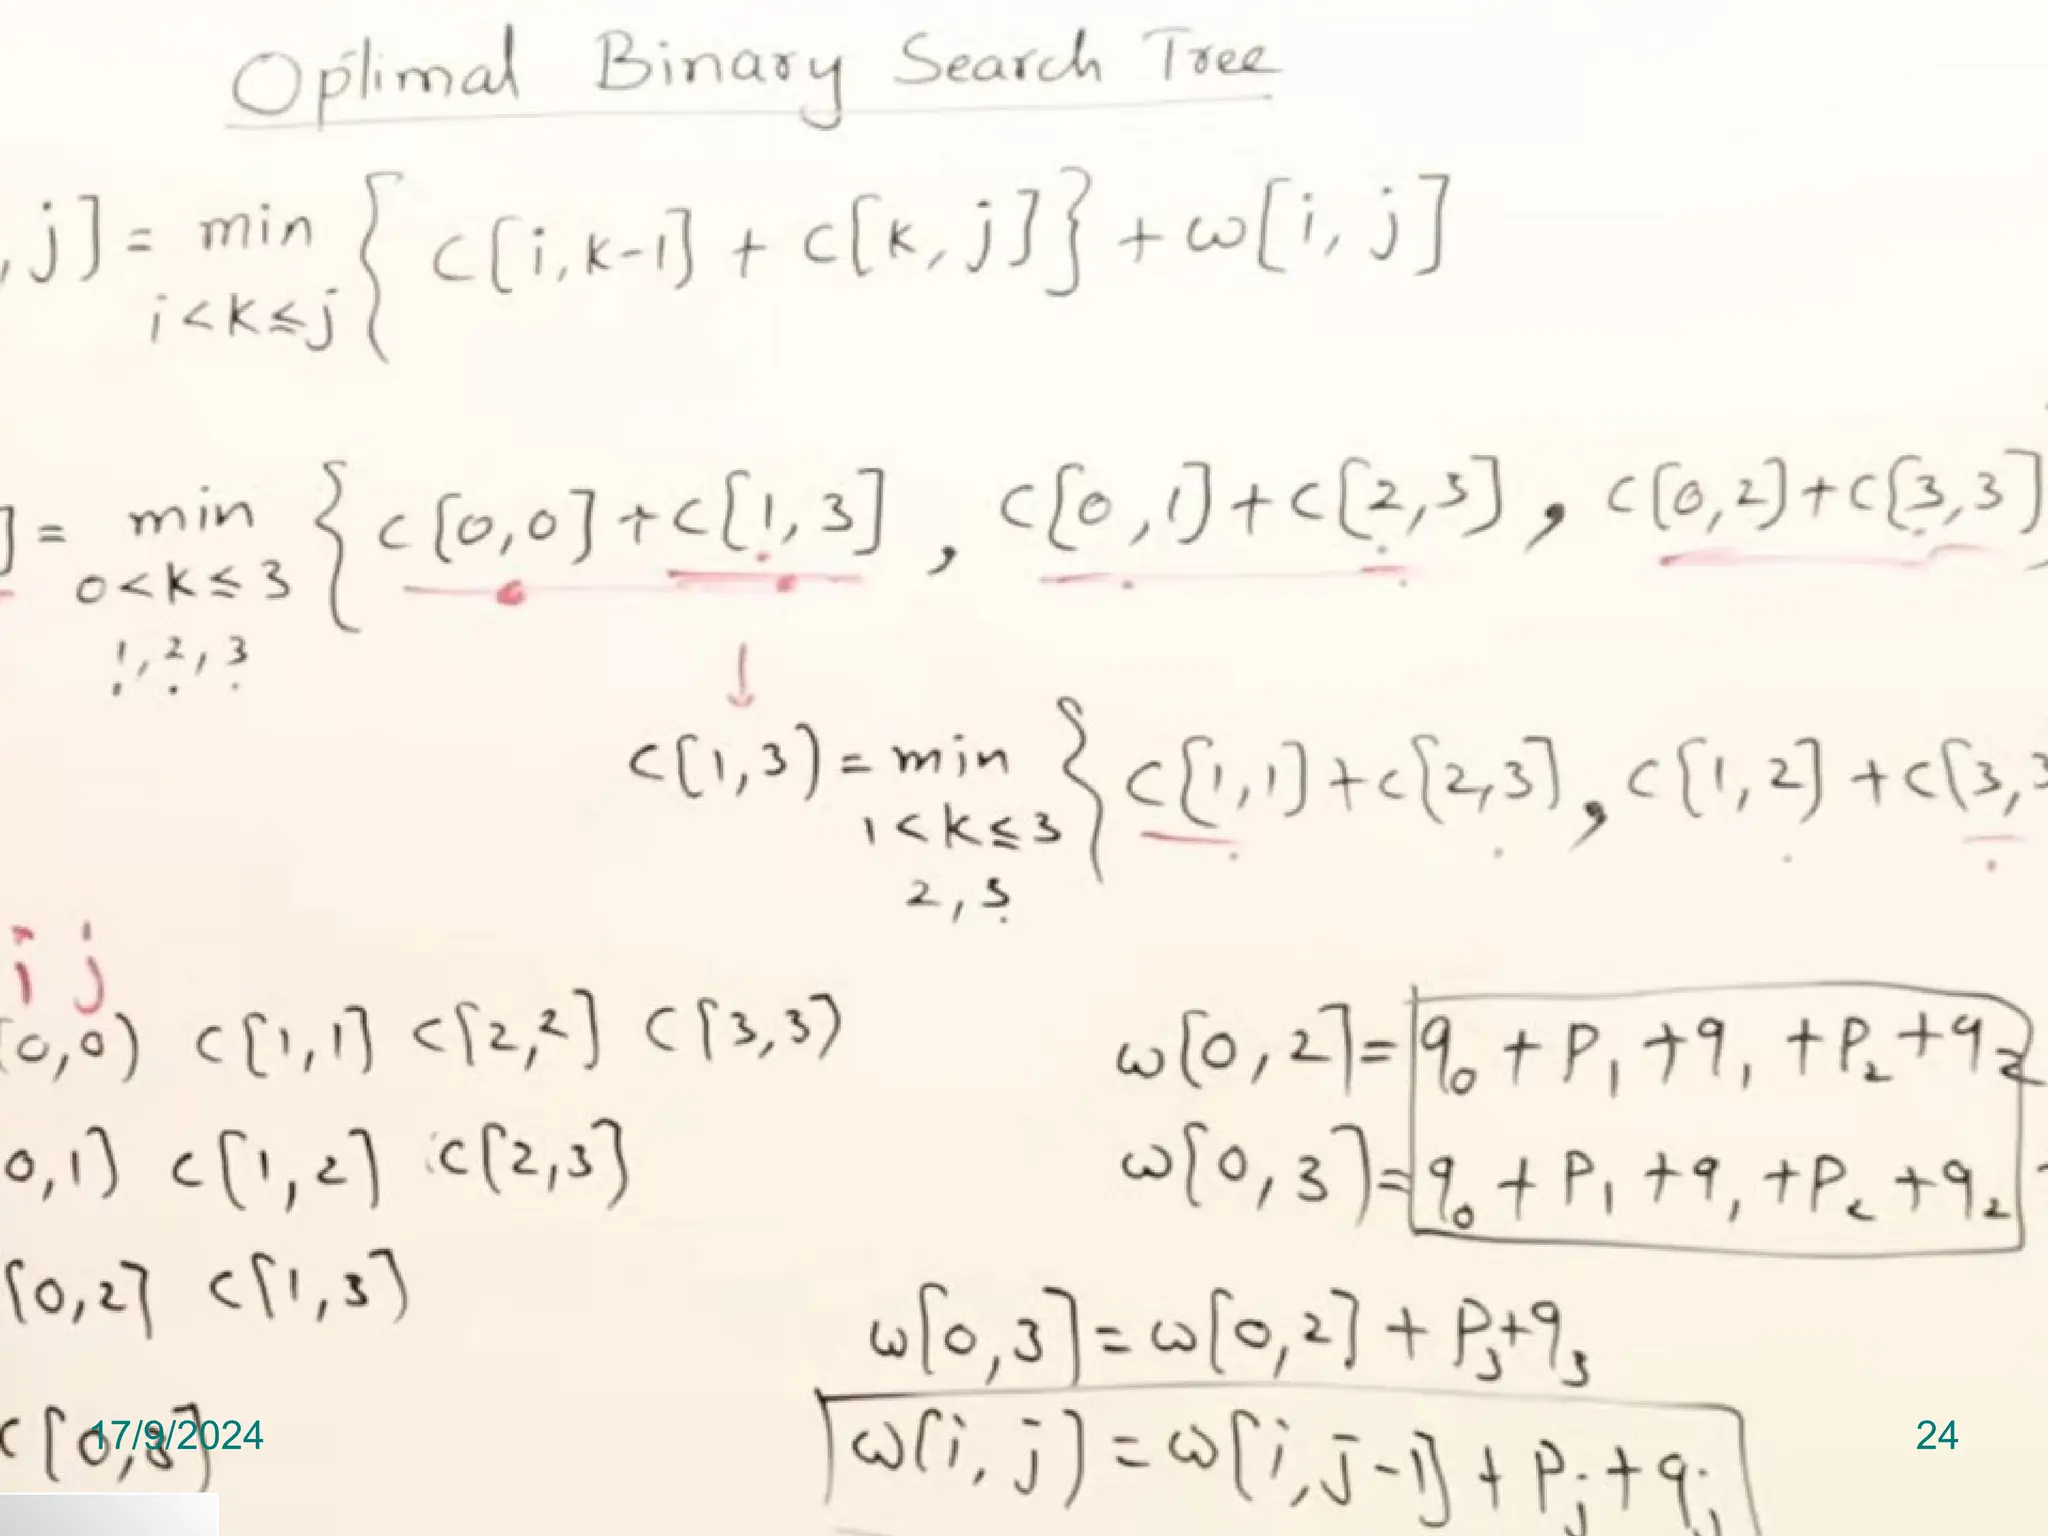 Optimal Binary Search Tree
, j] = min { C[i, k-1] + C[k, j] } + ω[i, j]
i < k ≤ j
] = min { C[0,0] + C[1,3] , C[0,1] + C[2,3] , C[0,2] + C[3,3]
0 < k ≤ 3
1, 2, 3
↓
C[1,3] = min { C[1,1] + C[2,3] , C[1,2] + C[3,3
1 < k ≤ 3
2, 3
i j
[0,0] C[1,1] C[2,2] C[3,3]
0,1] C[1,2] C[2,3]
[0,2] C[1,3]
C[0,3]
ω[0,2] = q₀ + P₁ + q₁ + P₂ + q₂
ω[0,3] = q₀ + P₁ + q₁ + P₂ + q₂ +
ω[0,3] = ω[0,2] + P₃ + q₃
ω[i, j] = ω[i, j-1] + Pⱼ + qⱼ
17/9/2024
24